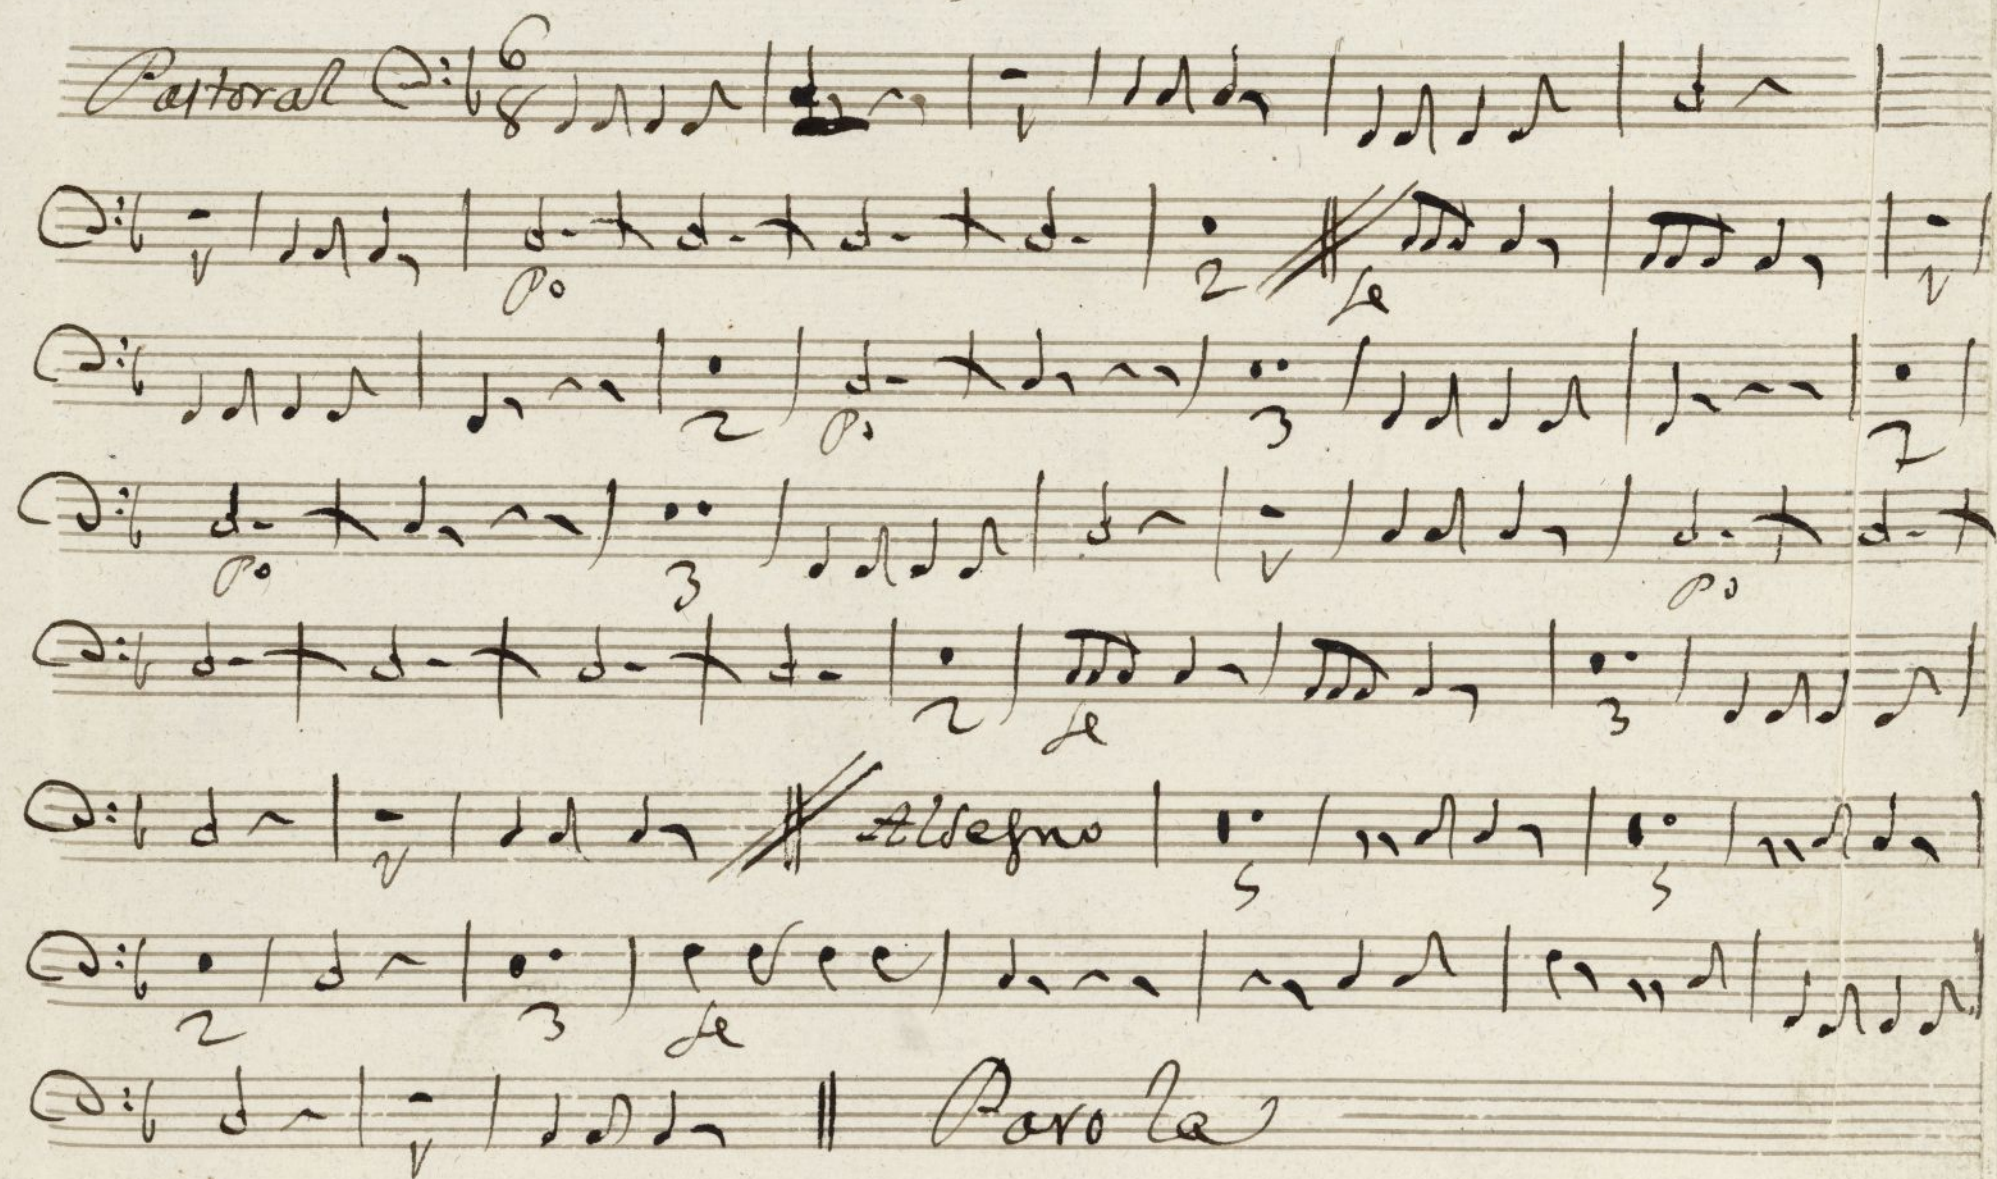 Pastoral 6 8
Po 2 fe
2 Po 3 7
Po 3 Po
2 fe 3
Al Segno 5 5
2 3 fe
Parola